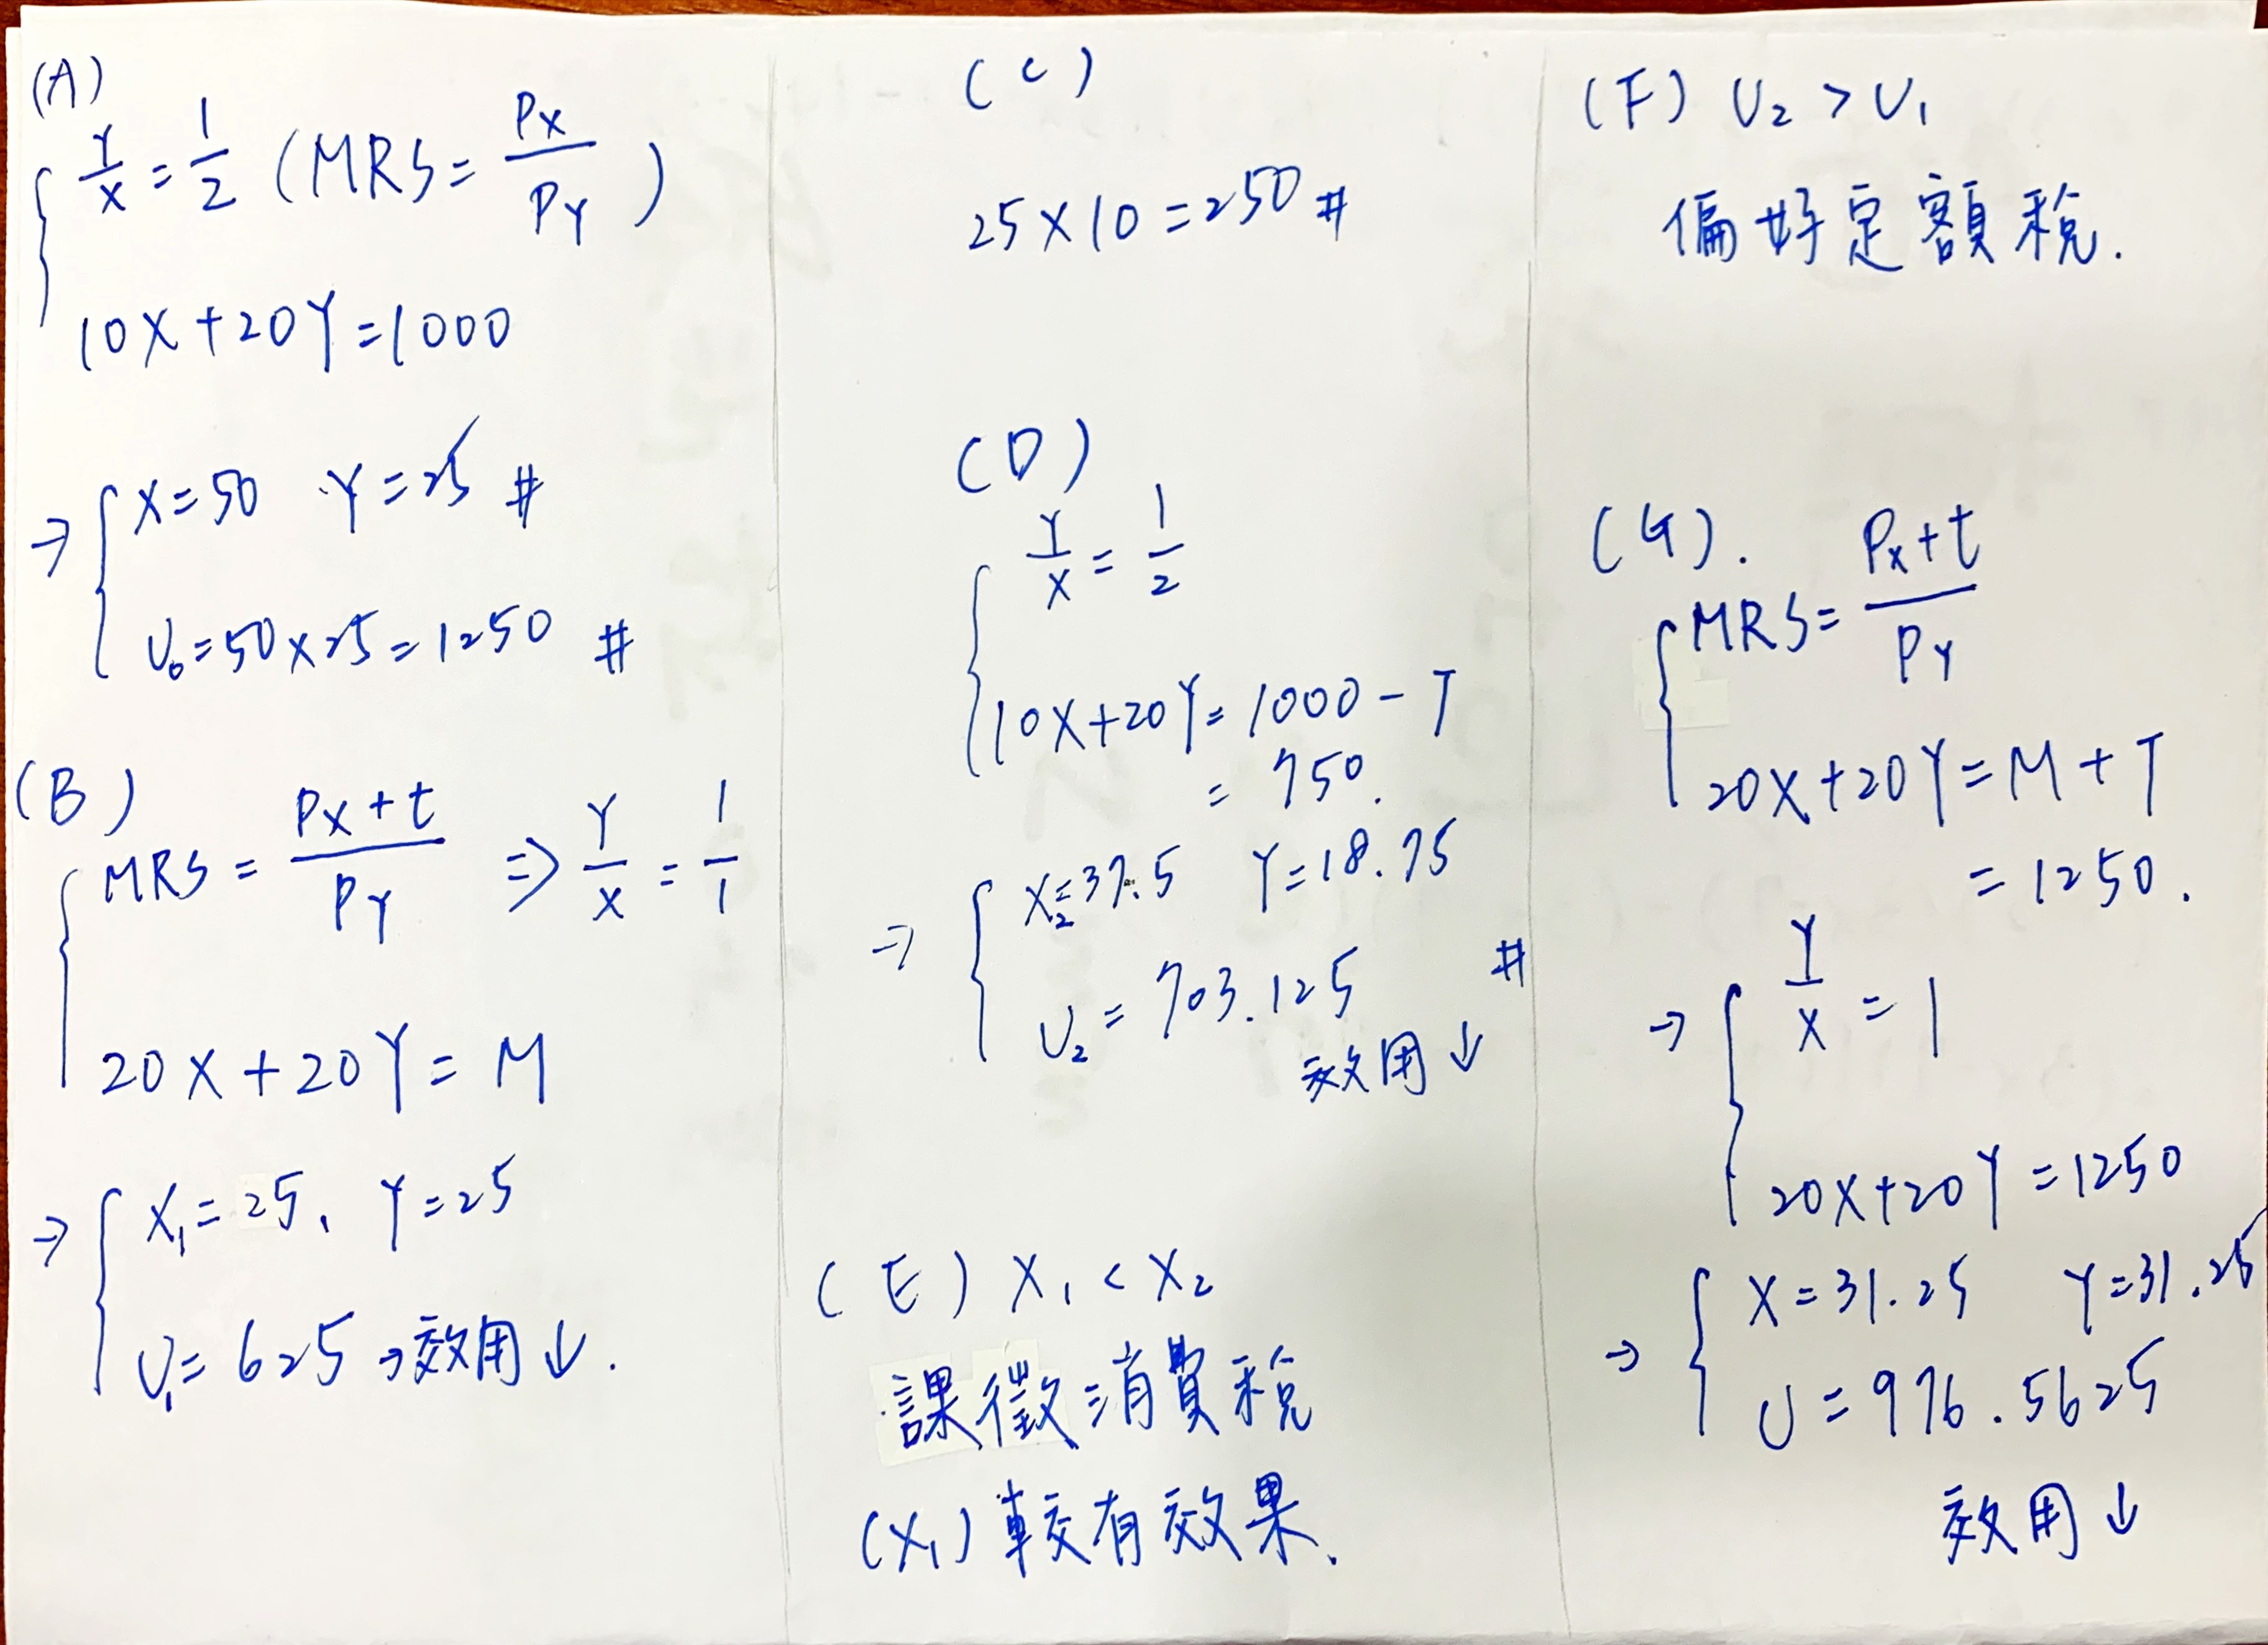 (A)
Y/X = 1/2 (MRS = PX/PY)
10X + 20Y = 1000
⇒ X = 50 Y = 25 #
U₀ = 50 × 25 = 1250 #
(B)
MRS = PX + t/PY ⇒ Y/X = 1/1
20X + 20Y = M
⇒ X₁ = 25, Y = 25
U₁ = 625 → 效用↓.
(C)
25 × 10 = 250 #
(D)
Y/X = 1/2
10X + 20Y = 1000 - T
= 750.
⇒ X₂ = 37.5 Y = 18.75
U₂ = 703.125 #
效用↓
(E) X₁ < X₂
課徵消費稅
(X₁) 較有效果.
(F) U₂ > U₁
偏好定額稅.
(G).
MRS = PX + t/PY
20X + 20Y = M + T
= 1250.
⇒ Y/X = 1
20X + 20Y = 1250
⇒ X = 31.25 Y = 31.25
U = 976.5625
效用↓